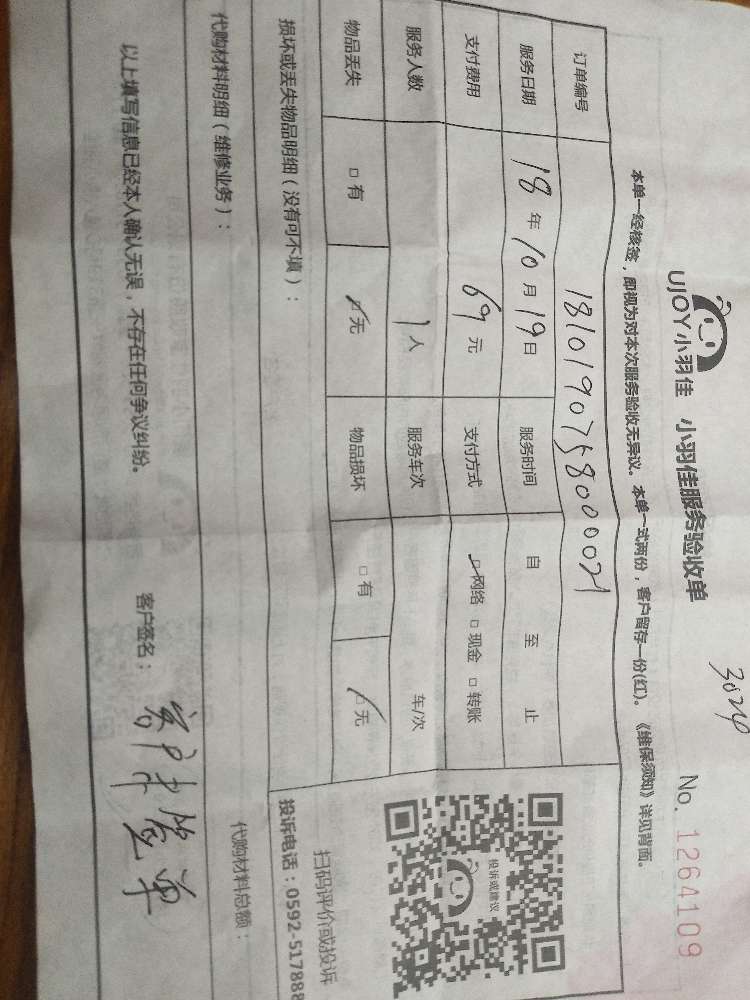 3024p
UJOY小羽佳 小羽佳服务验收单 No. 1264109
本单一经核签，即视为对本次服务验收无异议。本单一式两份，客户留存一份(红)。《维保须知》详见背面。
订单编号 181019075800002
服务日期 18年10月19日 服务时间 自 至 止
支付费用 69元 支付方式 网络 现金 转账
服务人数 1人 服务车次 车/次
物品丢失 有 无 物品损坏 有 无
投诉或建议
扫码评价或投诉
投诉电话：0592-517888
损坏或丢失物品明细（没有可不填）：
代购材料明细（维修业务）： 代购材料总额：
以上填写信息已经本人确认无误，不存在任何争议纠纷。 客户签名：